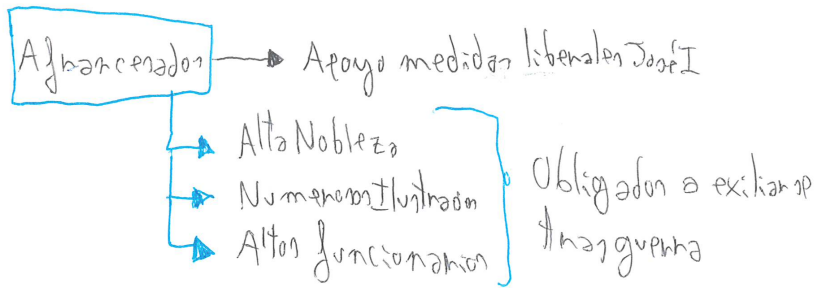 Afrancesados
Apoyo medidas liberales José I
Alta Nobleza
Numerosos Ilustrados
Altos funcionarios
Obligados a exiliarse
tras guerra